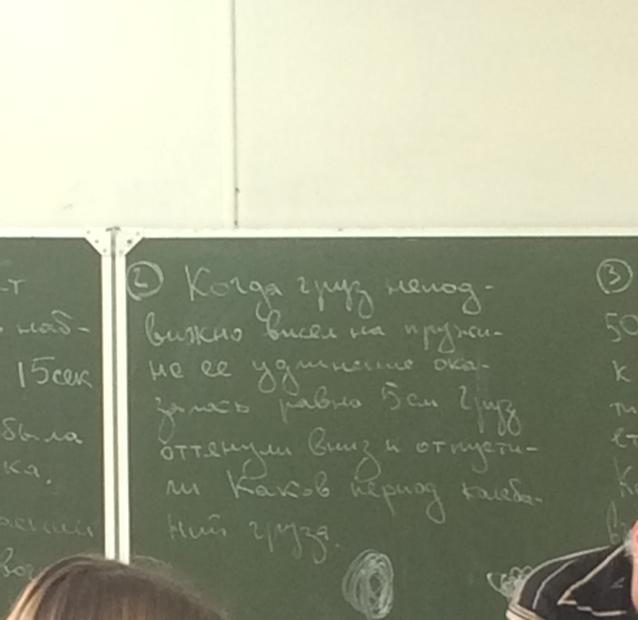 15сек
была
ка.
② Когда груз непод-
вижно висел на пружи-
не ее удлинение ока-
залось равно 5см Груз
оттянули вниз и отпусти-
ли Каков период колеба-
ний груза.
③
50
к